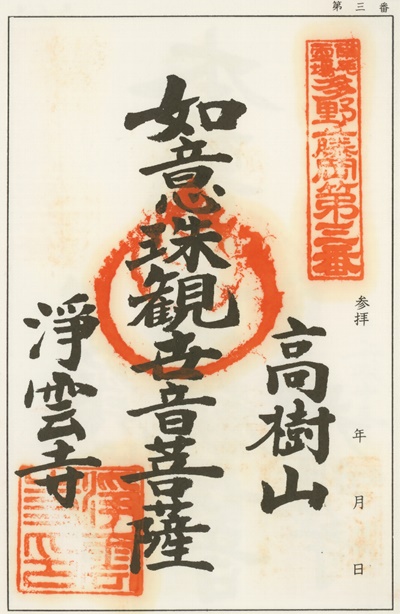 第三番
多野藤岡第三番
参拝　年　月　日
高樹山
如意珠観世音菩薩
淨雲寺